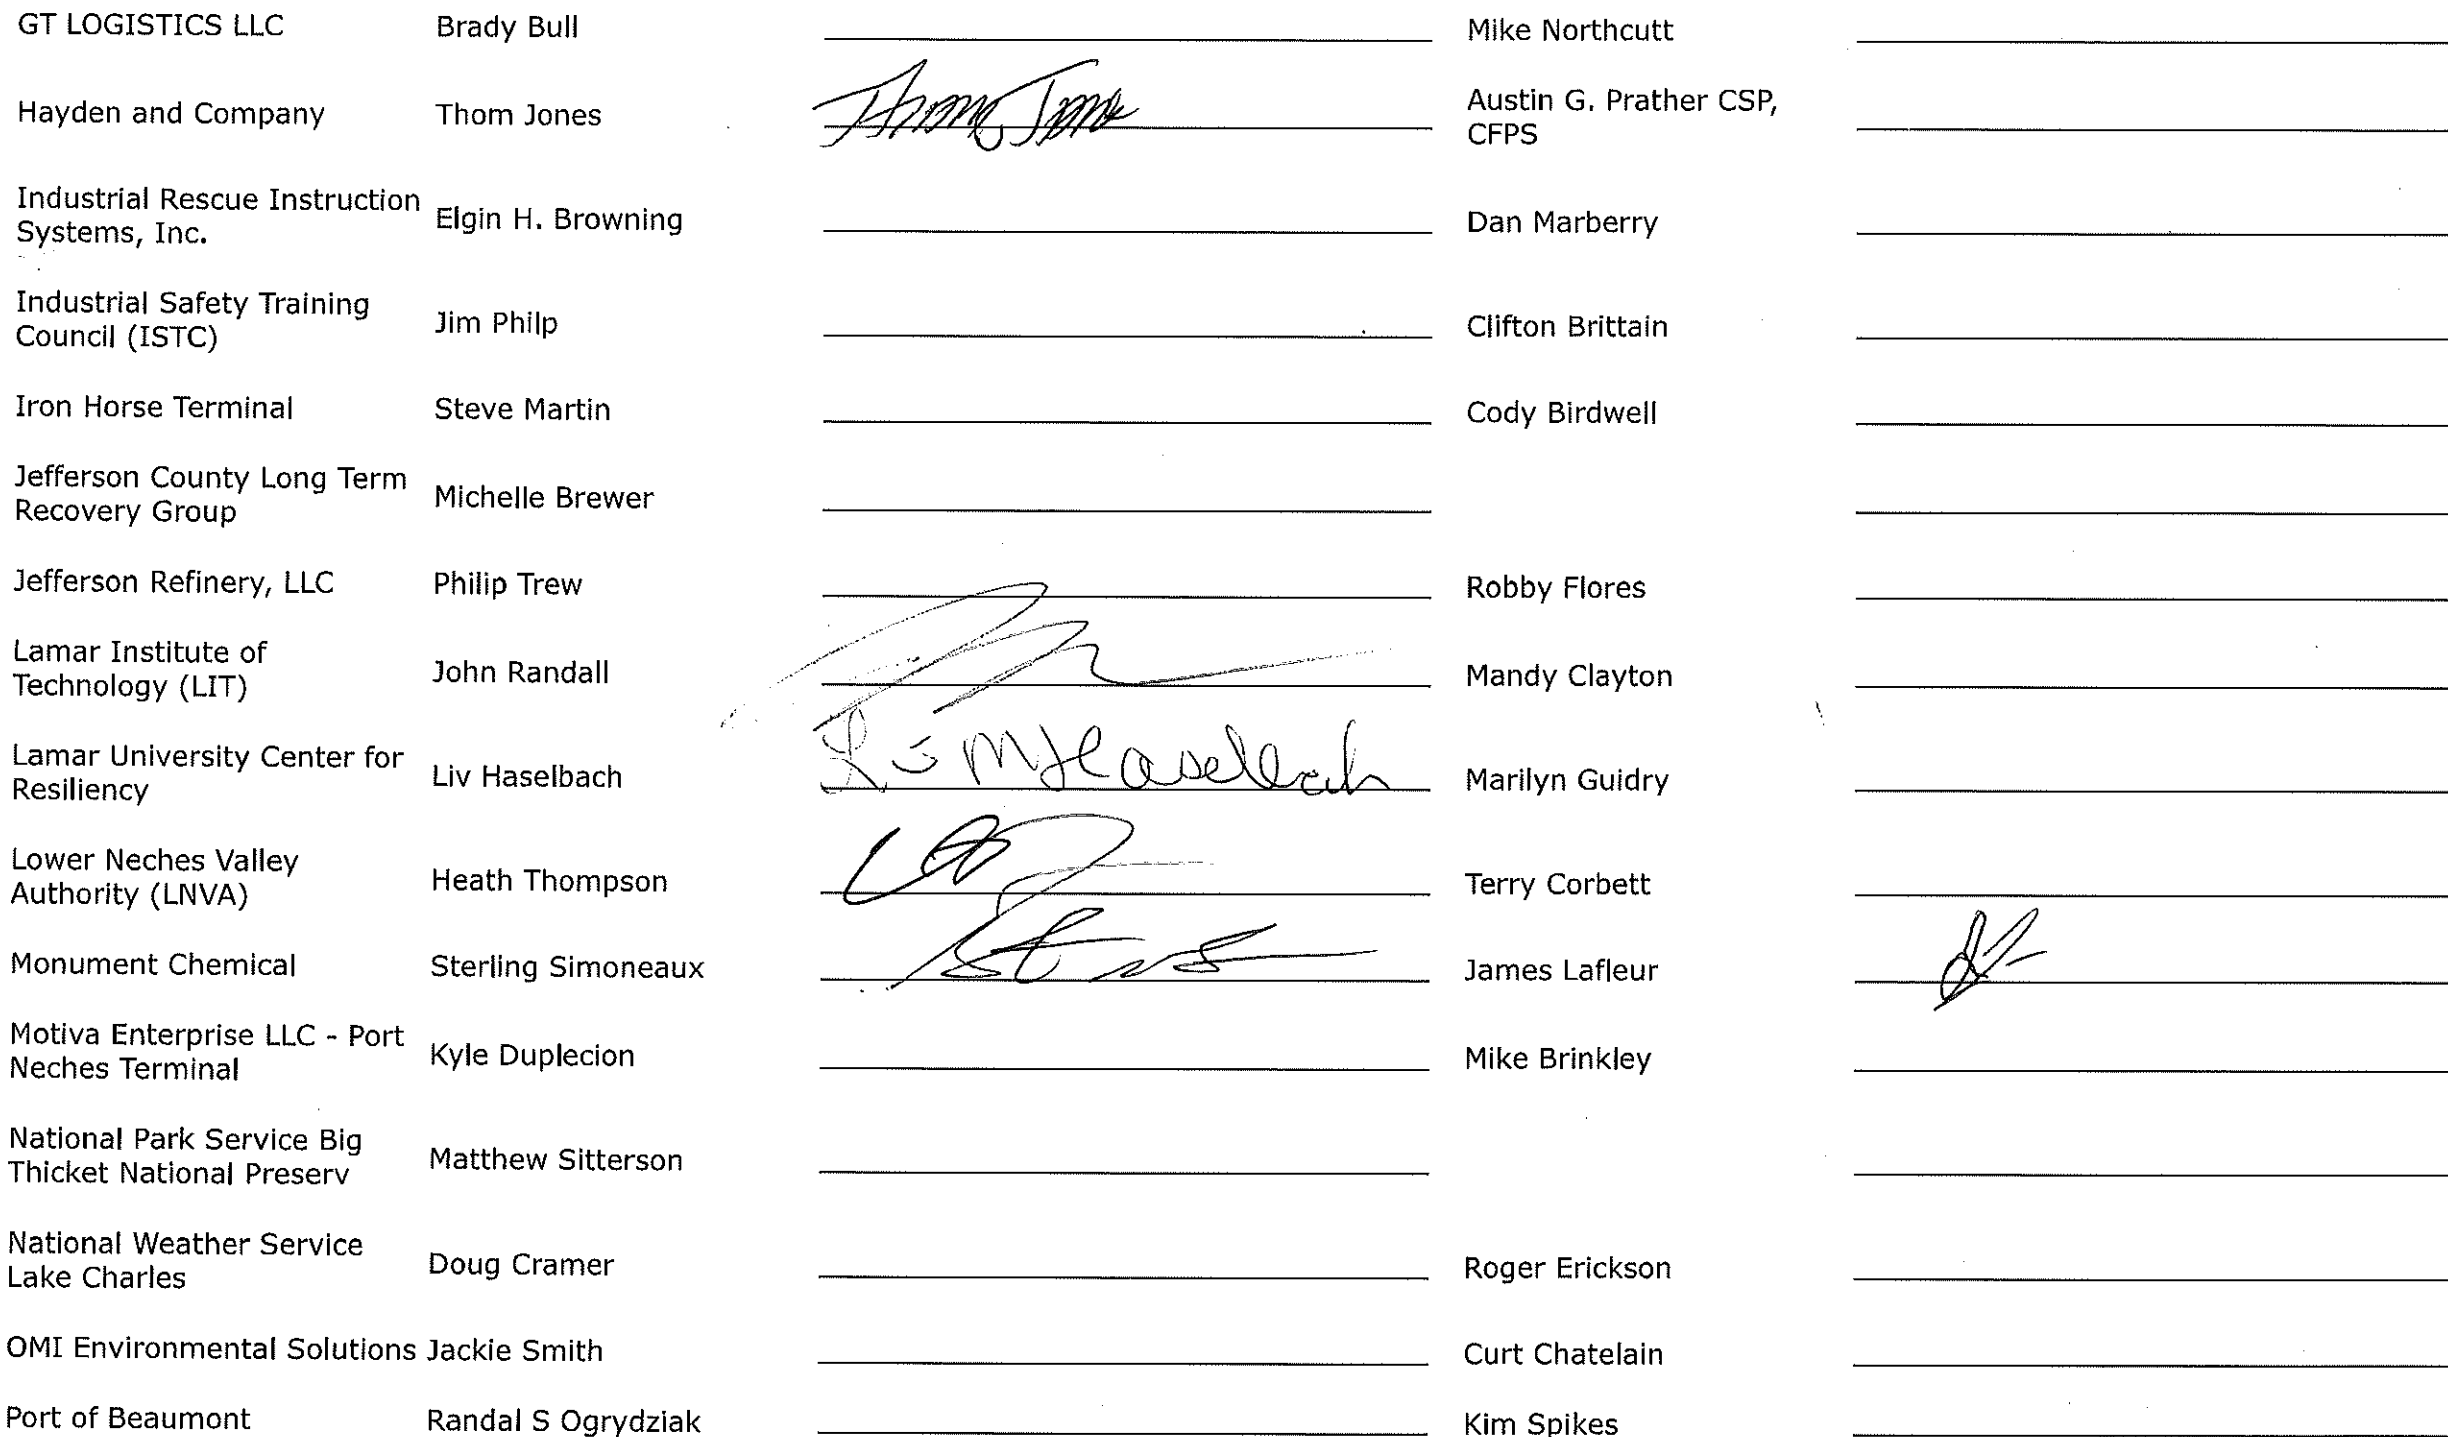 GT LOGISTICS LLC Brady Bull Mike Northcutt
Hayden and Company Thom Jones Thom Jones Austin G. Prather CSP,
CFPS
Industrial Rescue Instruction
Systems, Inc. Elgin H. Browning Dan Marberry
Industrial Safety Training
Council (ISTC) Jim Philp Clifton Brittain
Iron Horse Terminal Steve Martin Cody Birdwell
Jefferson County Long Term
Recovery Group Michelle Brewer
Jefferson Refinery, LLC Philip Trew Robby Flores
Lamar Institute of
Technology (LIT) John Randall Mandy Clayton
Lamar University Center for
Resiliency Liv Haselbach Liv M Haselbach Marilyn Guidry
Lower Neches Valley
Authority (LNVA) Heath Thompson Terry Corbett
Monument Chemical Sterling Simoneaux James Lafleur
Motiva Enterprise LLC - Port
Neches Terminal Kyle Duplecion Mike Brinkley
National Park Service Big
Thicket National Preserv Matthew Sitterson
National Weather Service
Lake Charles Doug Cramer Roger Erickson
OMI Environmental Solutions Jackie Smith Curt Chatelain
Port of Beaumont Randal S Ogrydziak Kim Spikes